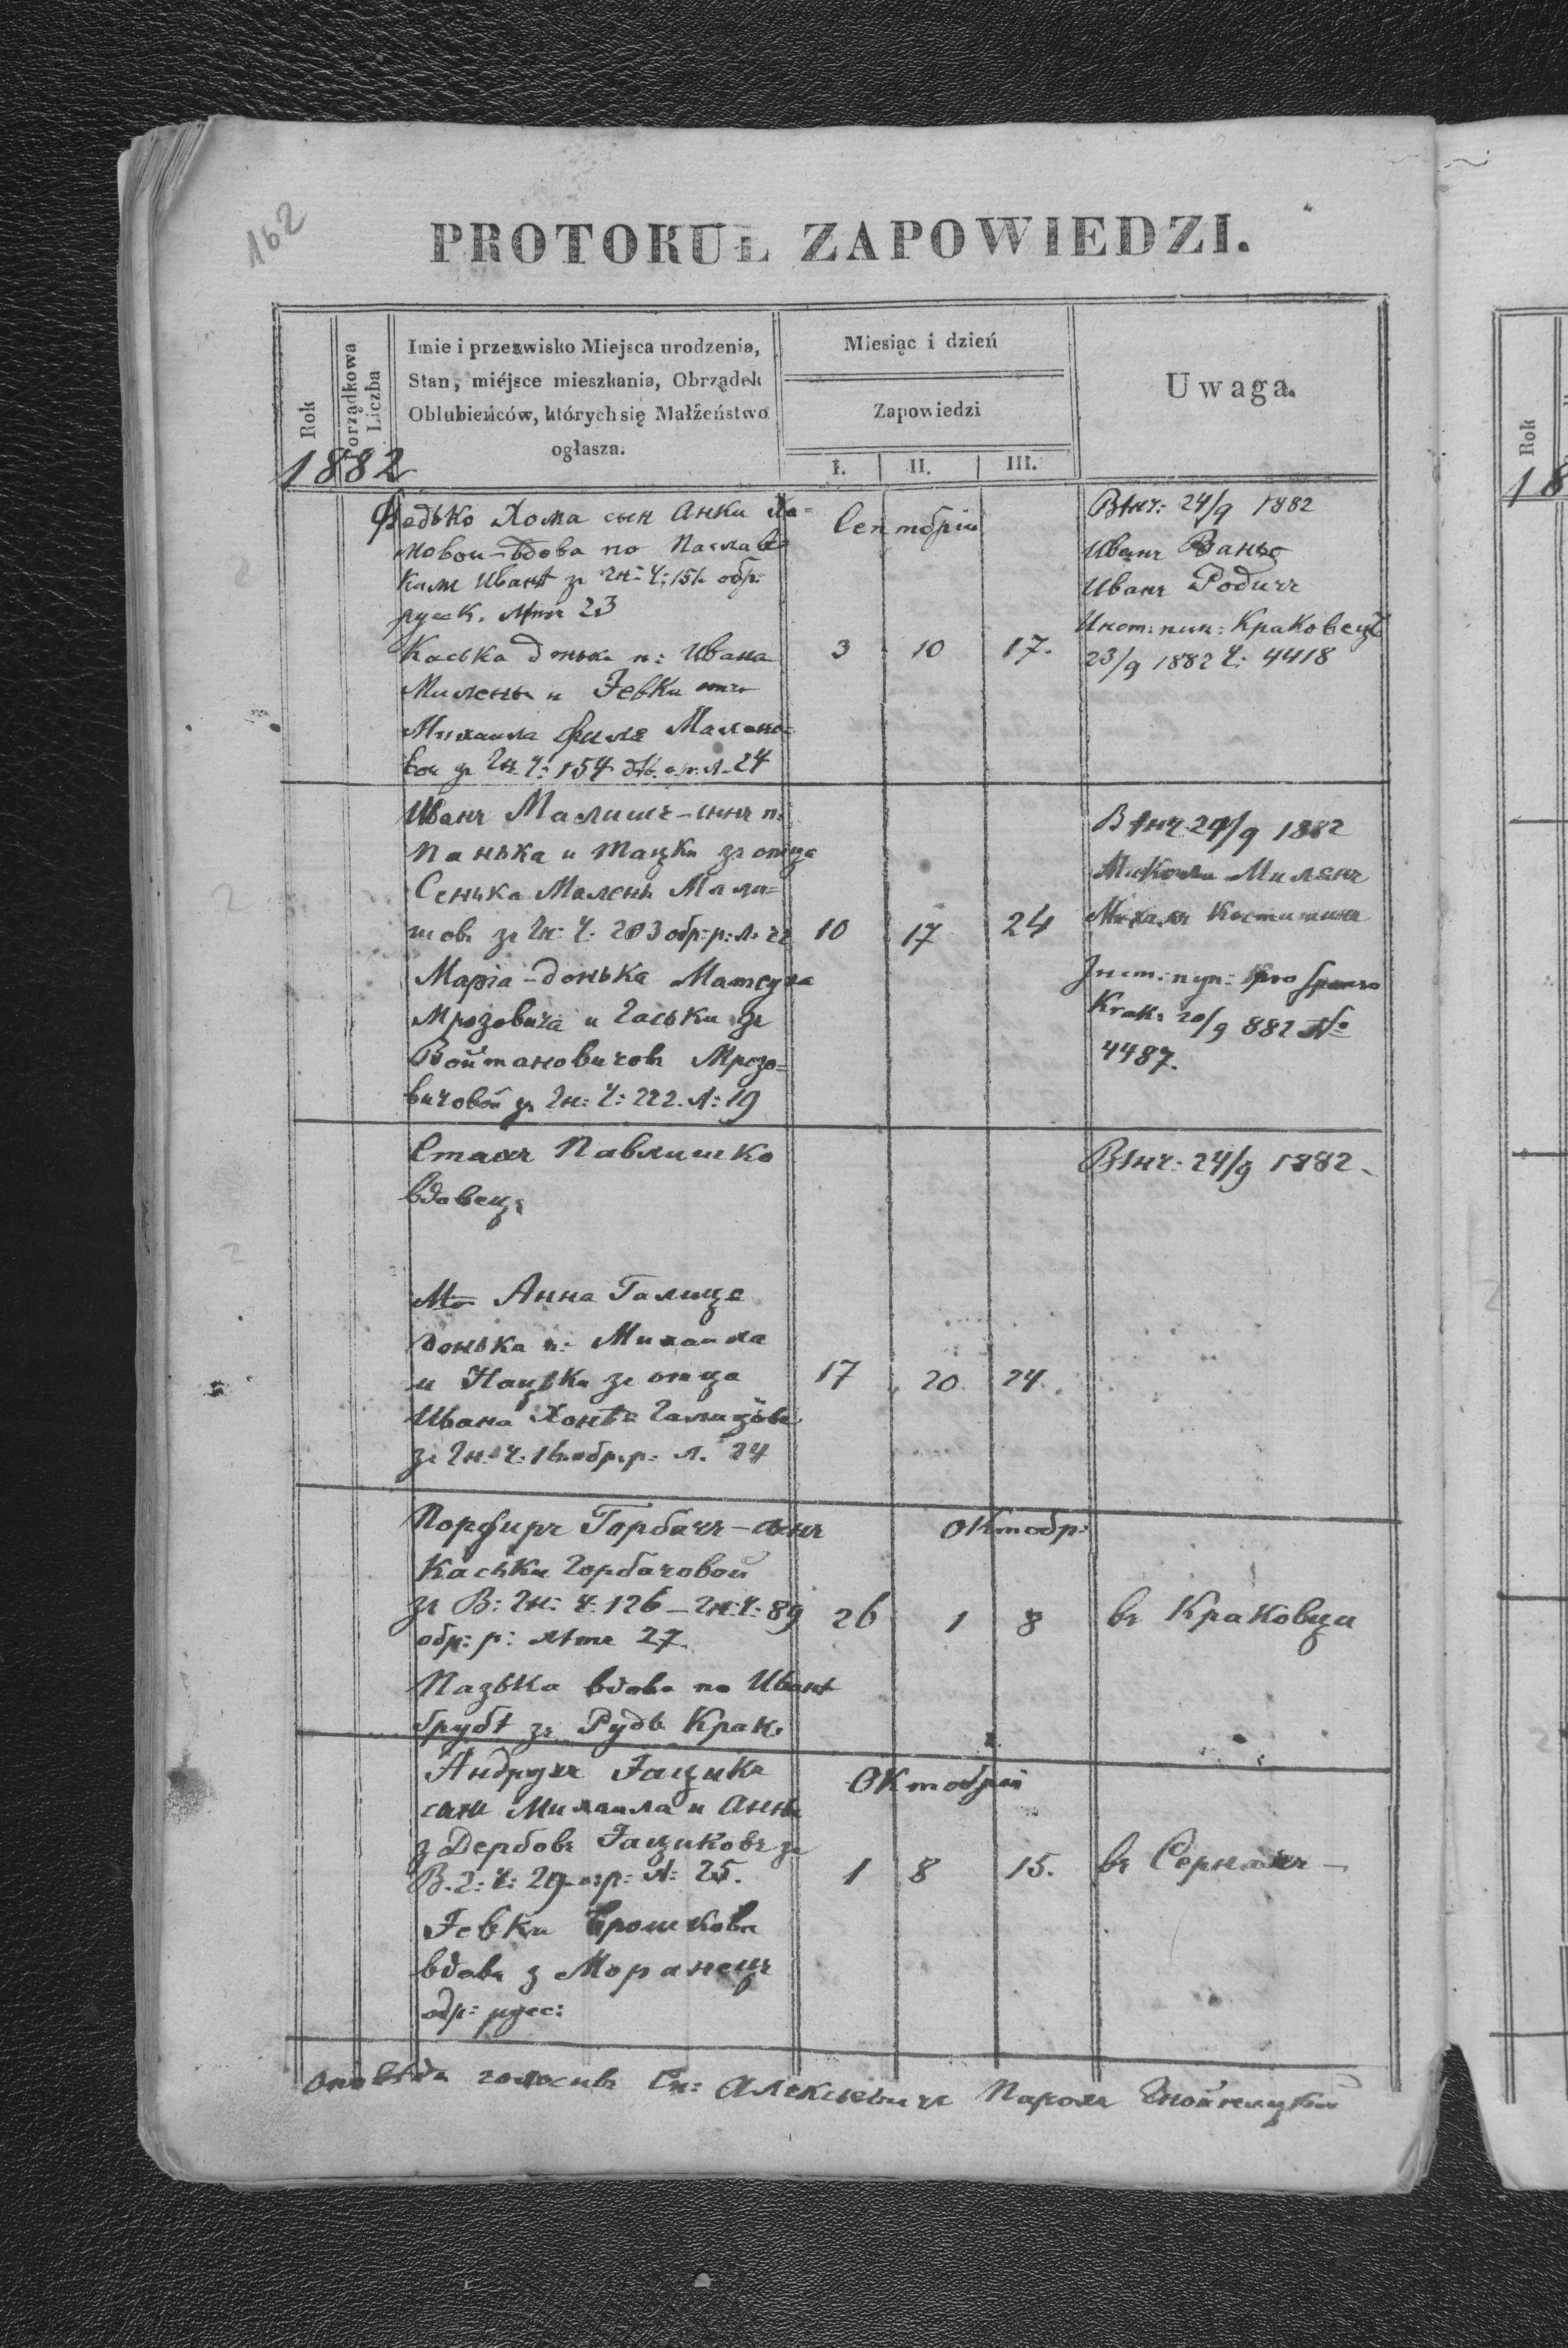 162
PROTOKUŁ ZAPOWIEDZI.
Rok
Porządkowa Liczba
Imie i przezwisko Miejsca urodzenia,
Stan, miéjsce mieszkania, Obrządek
Oblubieńców, których się Małżeństwo
ogłasza.
Miesiąc i dzień
Zapowiedzi
I. II. III.
Uwaga.
1882
Федько Хома сын Анки Хо=
мовои - вдова по
Ивант зъ Чн: Ч: 151 обр:
руск. лѣтъ 23
Каська донька п: Ивана
Милень и Іевки
Михаила Филя Малено=
вои зъ Чн: Ч: 154 24
Септобрія
3 10 17.
Вѣнч: 24/9 1882
Иванъ Ваньо
Иванъ Родичъ
Инст: пуп: Краковецъ
23/9 1882 Ч: 4418
Иванъ Малишъ - сынъ п:
Панька и Тацки зъ отца
Сенька Малень Мали=
шовъ зъ Чн: Ч: 203 обр: р: л: 22
Маріа - донька Матеуша
Мрозовича и Каськи зъ
Войтановичовъ Мрозо=
вичовой зъ Чн: Ч: 222. л: 19
10 17 24
Вѣнч: 24/9 1882
Микола Миленъ
Михалъ
Інст: пуп: pro
Krak: 20/9 882 No
4487.
Стахъ Павлишко
вдовецъ
Анна Галица
донька п: Михаила
и Нацька зъ отца
Ивана Галицовъ
зъ Чн: Ч: обр. р: л. 24
17 20 24
Вѣнч: 24/9 1882
Порфиръ Горбачъ - сынъ
Каськи Горбачовой
зъ В: Чн: Ч: 126 - Чн: Ч: 89
обр: р: лѣтъ 27.
Пазька вдова по Иванѣ
Грубѣ зъ Рудь Крак.
октобр:
26 1 8
въ Краковци
Андрухъ Іацикъ
сынъ Михаила и Анны
з Дербовъ Іациковъ зъ
В. Ч: Ч: 29 р: л: 25.
Іевка
вдова з Моранецъ
обр: рус:
Октобрія
1 8 15.
въ Сернахъ -
Оповѣди голосивъ Сп: Алексіевичъ Парохъ